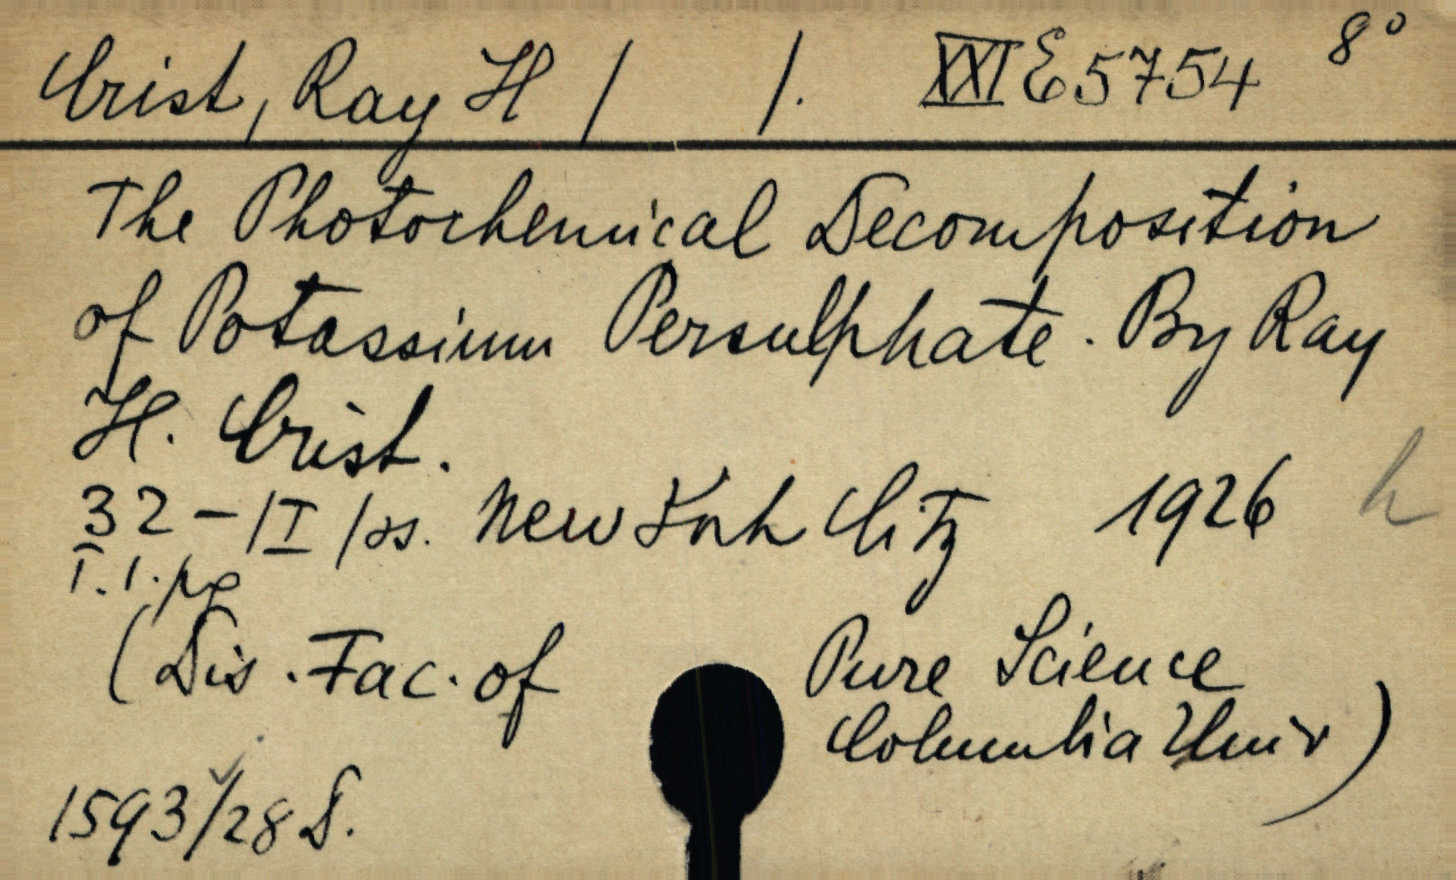 Crist, Ray H / /. XXI E 5754 8°
The Photochemical Decomposition
of Potassium Persulphate. By Ray
H. Crist.
32 - /I/ ss. New York City 1926 h
T. 1. pg
(Dis. Fac. of Pure Science
Columbia Univ)
1593/28 D.